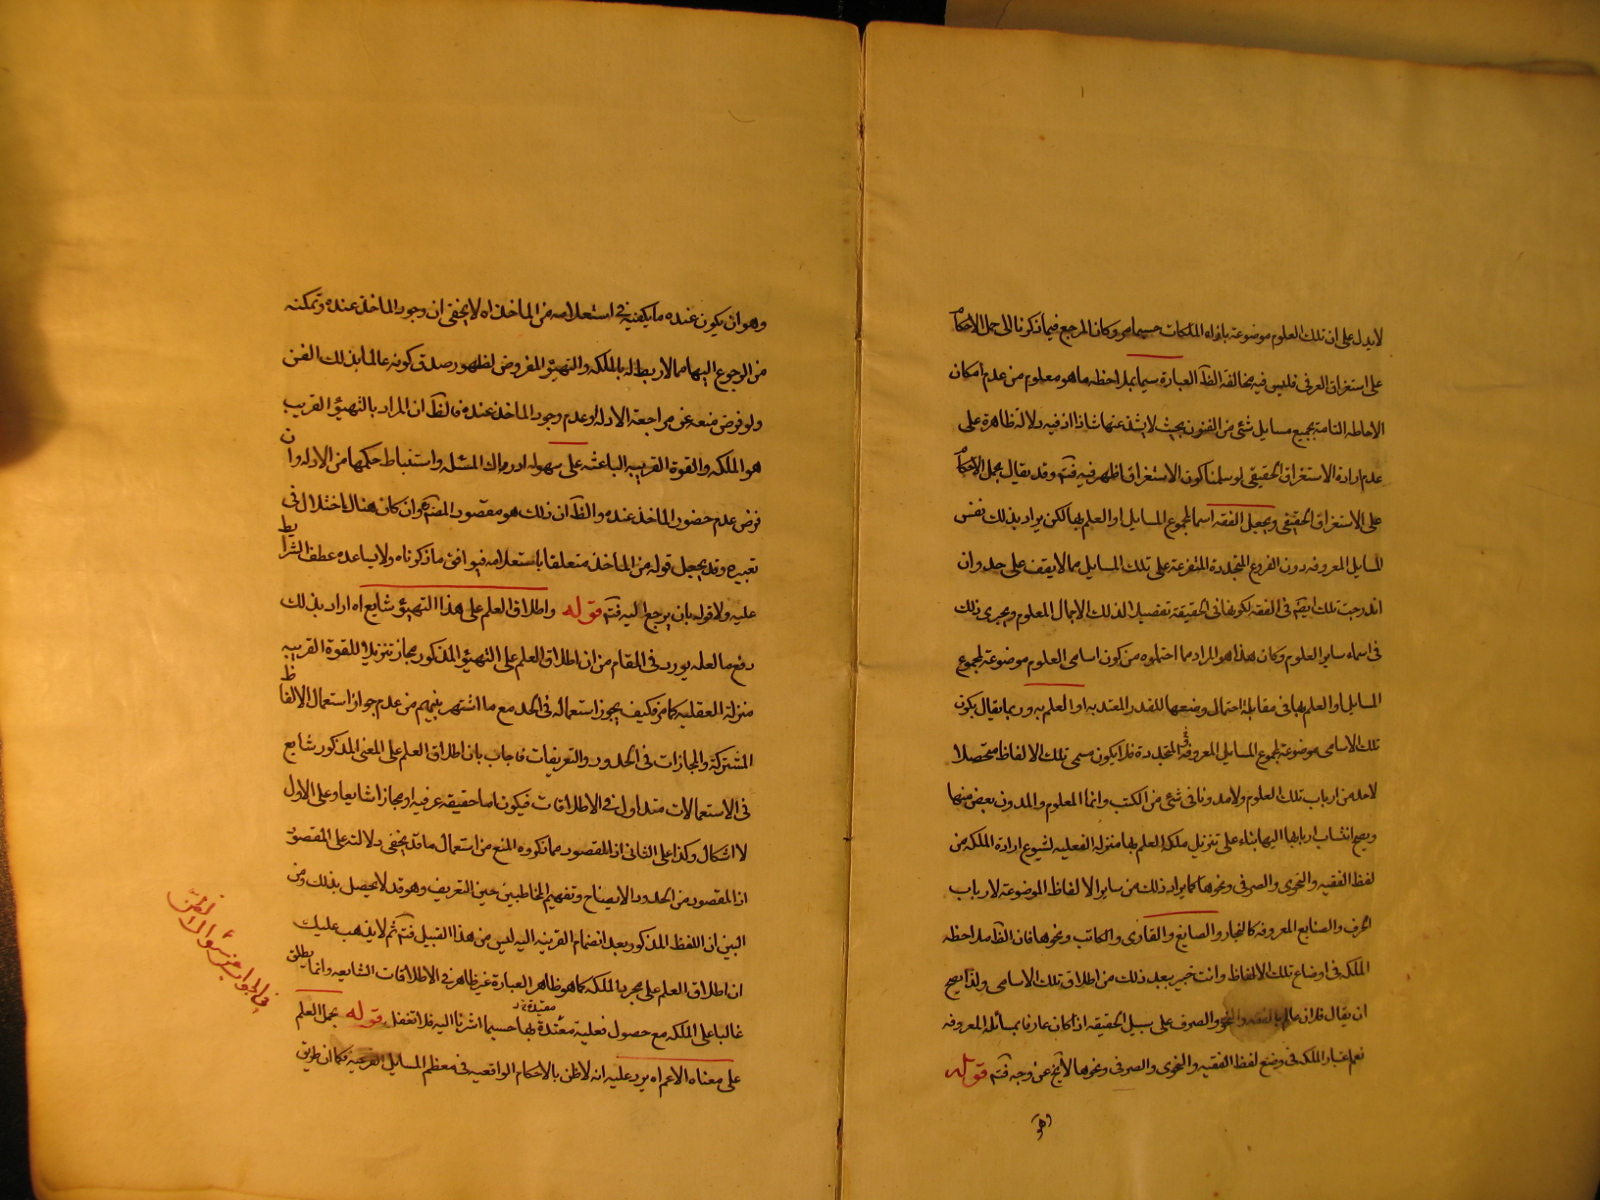 لا يدل على ان تلك العلوم موضوعة بازاء الملكات حسبما مر وكان المرجع فيما ذكرنا الى حمل الاحكام
على استغراق العرفى فليس فيه مخالفة الظ العبارة سيما بملاحظه ما هو معلوم من عدم امكان
الاحاطه التامة بجميع مسايل شئى من الفنون بحيث لا يشذ عنها شاذ اذ فيه دلالة ظاهرة على
عدم ارادة الاستغراق الحقيقى لو سلمنا كون الاستغراق اظهر فيه فتم وقد يقال بحمل الاحكام
على الاستغراق الحقيقى ويجعل الفقه اسما لمجموع المسايل او العلم بها لكن يراد بذلك نفس
المسايل المعروفه دون الفروع المتجددة المتفرعة على تلك المسايل مما لا يقف على حد وان
اندرجت تلك ايضا فى الفقه لكونها فى الحقيقة تفصيلا لذلك الاجمال المعلوم ويجرى ذلك
فى اسماء ساير العلوم وكان هذا هو المراد مما احتملوه من كون اسامى العلوم موضوعة لمجموع
المسايل او العلم بها فى مقابلة احتمال وضعها للقدر المعتد به او العلم به وربما يقال بكون
تلك الاسامى موضوعة لمجموع المسايل المعروفة المتجددة فلا يكون مسمى تلك الالفاظ متحصلا
لاحد من ارباب تلك العلوم ولا مدونا فى شئى من الكتب وانما المعلوم والمدون بعض منها
ويصح انتساب اربابها اليها بناء على تنزيل ملكة العلم بها منزلة الفعلية لشيوع ارادة الملكه من
لفظ الفقيه والنحوى والصرفى ونحوها كما يراد ذلك من ساير الالفاظ الموضوعة لارباب
الحرف والصنايع المعروفه كالنجار والصايغ والقارى والكاتب ونحوها فان الظ ملاحظه
الملكه فى اوضاع تلك الالفاظ وانت خبير ببعد ذلك من اطلاق تلك الاسامى ولذا يصح
ان يقال فلان عالم بالفقه والنحو والصرف على سبيل الحقيقه اذا كان عارفا بمسائله المعروفه
نعم اعتبار الملكه فى وضع لفظ الفقيه والنحوى والصرفى ونحوها لا يخ عن وجه فتم قوله
وهو
وهو ان يكون عنده ما يكفيه فى استعلامه من الماخذ اه لا يخفى ان وجود الماخذ عنده وتمكنه
من الرجوع اليها مما لا ربط له بالملكه والتهيؤ المفروض لظهور صدق كونه عالما بذلك الفن
ولو فرض منعه عن مراجعة الادله او عدم وجود الماخذ عنده فالظ ان المراد بالتهيؤ القريب
هو الملكه والقوة القريبه الباعثه على سهوله ادراك المسئله واستنباط حكمها من الادله وان
فرض عدم حضور الماخذ عنده والظ ان ذلك هو مقصود المصنف وان كان هناك اختلال فى
تعبيره وقد يجعل قوله من الماخذ متعلقا باستعلامه فيوافق ما ذكرناه ولا يساعده عطف الشرايط
عليه ولا قوله بان يرجع اليه فتم قوله واطلاق العلم على هذا التهيؤ شايع اه اراد بذلك
دفع ما لعله يورد فى المقام من ان اطلاق العلم على التهيؤ المذكور مجاز تنزيلا للقوة القريبه
منزلة العقليه كما مر فكيف يجوز استعماله فى الحد مع ما اشتهر بينهم من عدم جواز استعمال الالفاظ
المشتركة والمجازات فى الحدود والتعريفات فاجاب بان اطلاق العلم على المعنى المذكور شايع
فى الاستعمالات متداول فى الاطلاقات فيكون اما حقيقه عرفيه او مجازا شايعا وعلى الاول
لا اشكال وكذا على الثانى اذ المقصود مما ذكروه المنع من استعمال ما قد يخفى دلالته على المقصود
اذ المقصود من الحدود الايضاح وتفهيم المخاطبين حين التعريف وهو قد لا يحصل بذلك ومن
البين ان اللفظ المذكور بعد انضمام القرينه اليه ليس من هذا القبيل فتم ثم لا يذهب عليك
ان اطلاق العلم على مجرد الملكه كما هو ظاهر العبارة غير ظاهر فى الاطلاقات الشايعه وانما يطلق
غالبا على الملكه مع حصول فعلية معتدة بها حسبما اشرنا اليه فلا تغفل قوله يحمل العلم
على معناه الاعم اه يرد عليه انه لا ظن بالاحكام الواقعيه فى معظم المسايل الفرعيه فكما ان طريق
فى الجواب عن سؤال الظن